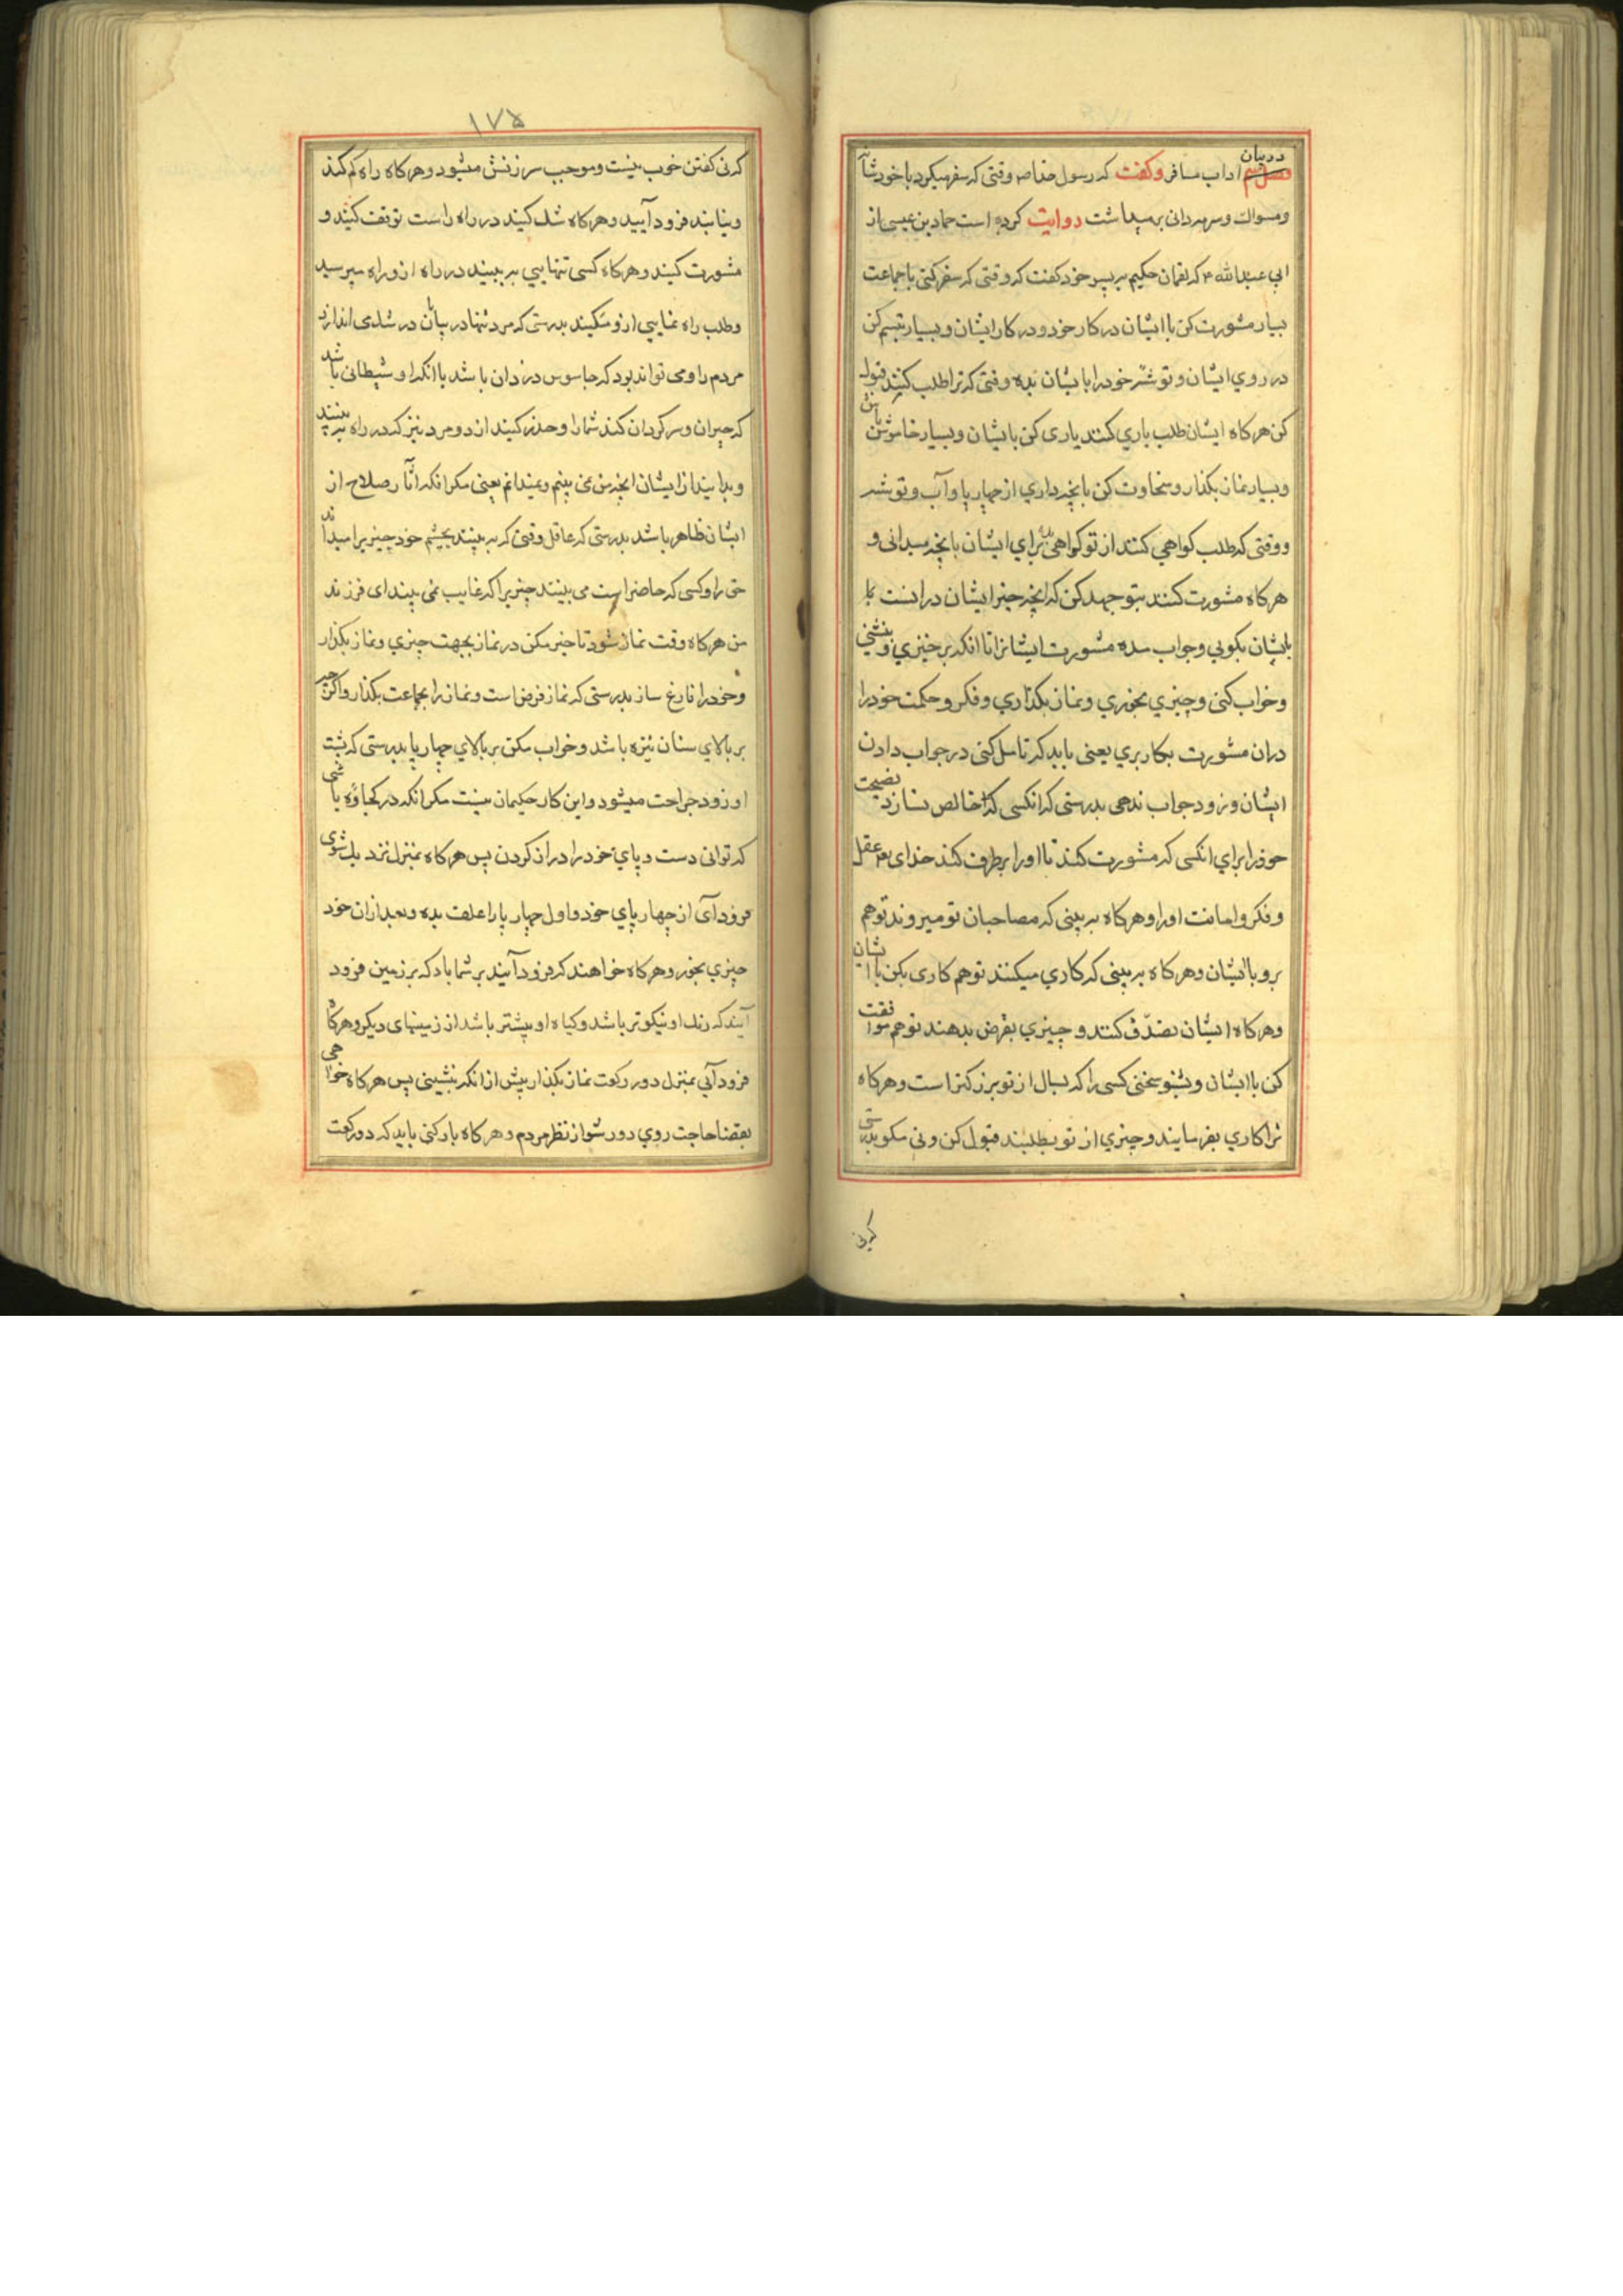 در بیان اداب مسافر وکفت که رسول خدا ص وقتی که سفر میکرد با خود شانه
ومسواک وسرمه دانی برمیداشت روایت کرده است حماد بن عیسی از
ابی عبدالله ع که لقمان حکیم بپسر خود کفت که وقتی که سفر کنی با جماعت
بسیار مشورت کن با ایشان در کار خود ودر کار ایشان وبسیار تبسم کن
در روی ایشان وتوشهٔ خود را بایشان بده وقتی که ترا طلب کنند قبول
کن هرکاه ایشان طلب یاری کنند یاری کن بایشان وبسیار خاموش باش
وبسیار نماز بکذار وسخاوت کن بانچه داری از چهارپا وآب وتوشه
ووقتی که طلب کواهی کنند از تو کواهی بده برای ایشان بانچه میدانی و
هرکاه مشورت کنند بتو جهد کن که انچه خیر ایشان در انست
بایشان بکویی وجواب مده مشورت ایشانرا تا انکه برخیزی وبنشینی
وخواب کنی وچیزی بخوری ونماز بکذاری وفکر وحکمت خود را
دران مشورت بکار بری یعنی باید که تامل کنی در جواب دادن
ایشان وزود جواب ندهی بدرستی که انکسی که خالص نسازد نصیحت
خود را برای انکسی که مشورت کند با او را برطرف کند خدای عقل
وفکر وامانت او را وهرکاه به بینی که مصاحبان تو میروند تو هم
برو با ایشان وهرکاه به بینی که کاری میکنند تو هم کاری بکن با ایشان
وهرکاه ایشان تصدّق کنند وچیزی بقرض بدهند تو هم موافقت
کن با ایشان وبشنو سخن کسی را که بسال از تو بزرکتر است وهرکاه
ترا کاری بفرمایند وچیزی از تو بطلبند قبول کن ونی مکو بدرستی
که نی
١٧٥
که نی کفتن خوب نیست وموجب سرزنش میشود وهرکاه راه کم کنند
وبیابند فرود آیید وهرکاه شک کنید در راه راست توقف کنید و
مشورت کنید وهرکاه کسی تنهایی به بینید در راه ازو راه مپرسید
وطلب راه نمایی ازو مکنید بدرستی که مرد تنها در بیابان در شک می اندازد
مردم را ومی تواند بود که جاسوس دزدان باشد یا انکه او شیطانی باشد
که حیران وسرکردان کند شما را وحذر کنید از دو مرد نیز که در راه به بینید
وبدانید از ایشان انچه من نمی بینم ونمیدانم یعنی مکر انکه اثار صلاح از
ایشان ظاهر باشد بدرستی که عاقل وقتی که به بیند بچشم خود چیزیرا میداند
حق را وکسی که حاضر است می بیند چیزیرا که غایب نمی بیند ای فرزند
من هرکاه وقت نماز شود تاخیر مکن در نماز بجهت چیزی ونماز بکذار
وخود را فارغ ساز بدرستی که نماز فرض است ونماز را بجماعت بکذار واکرچه
بر بالای سنان نیزه باشد وخواب مکن بر بالای چهارپا بدرستی که پشت
او زود جراحت میشود واین کار حکیمان نیست مکر انکه در کجاوه باشی
که توانی دست وپای خود را دراز کردن پس هرکاه بمنزل نزدیک شوی
فرود آی از چهارپای خود واول چهارپا را علف بده وبعد ازان خود
چیزی بخور وهرکاه خواهند که فرود آیند بر شما باد که بر زمین فرود
آیید که رنک او نیکوتر باشد وکیاه او بیشتر باشد از زمینهای دیکر وهرکاه
فرود آیی بمنزل دو رکعت نماز بکذار پیش از انکه بنشینی پس هرکاه خواهی
بقضا حاجت روی دور شو از نظر مردم وهرکاه بار کنی باید که دو رکعت